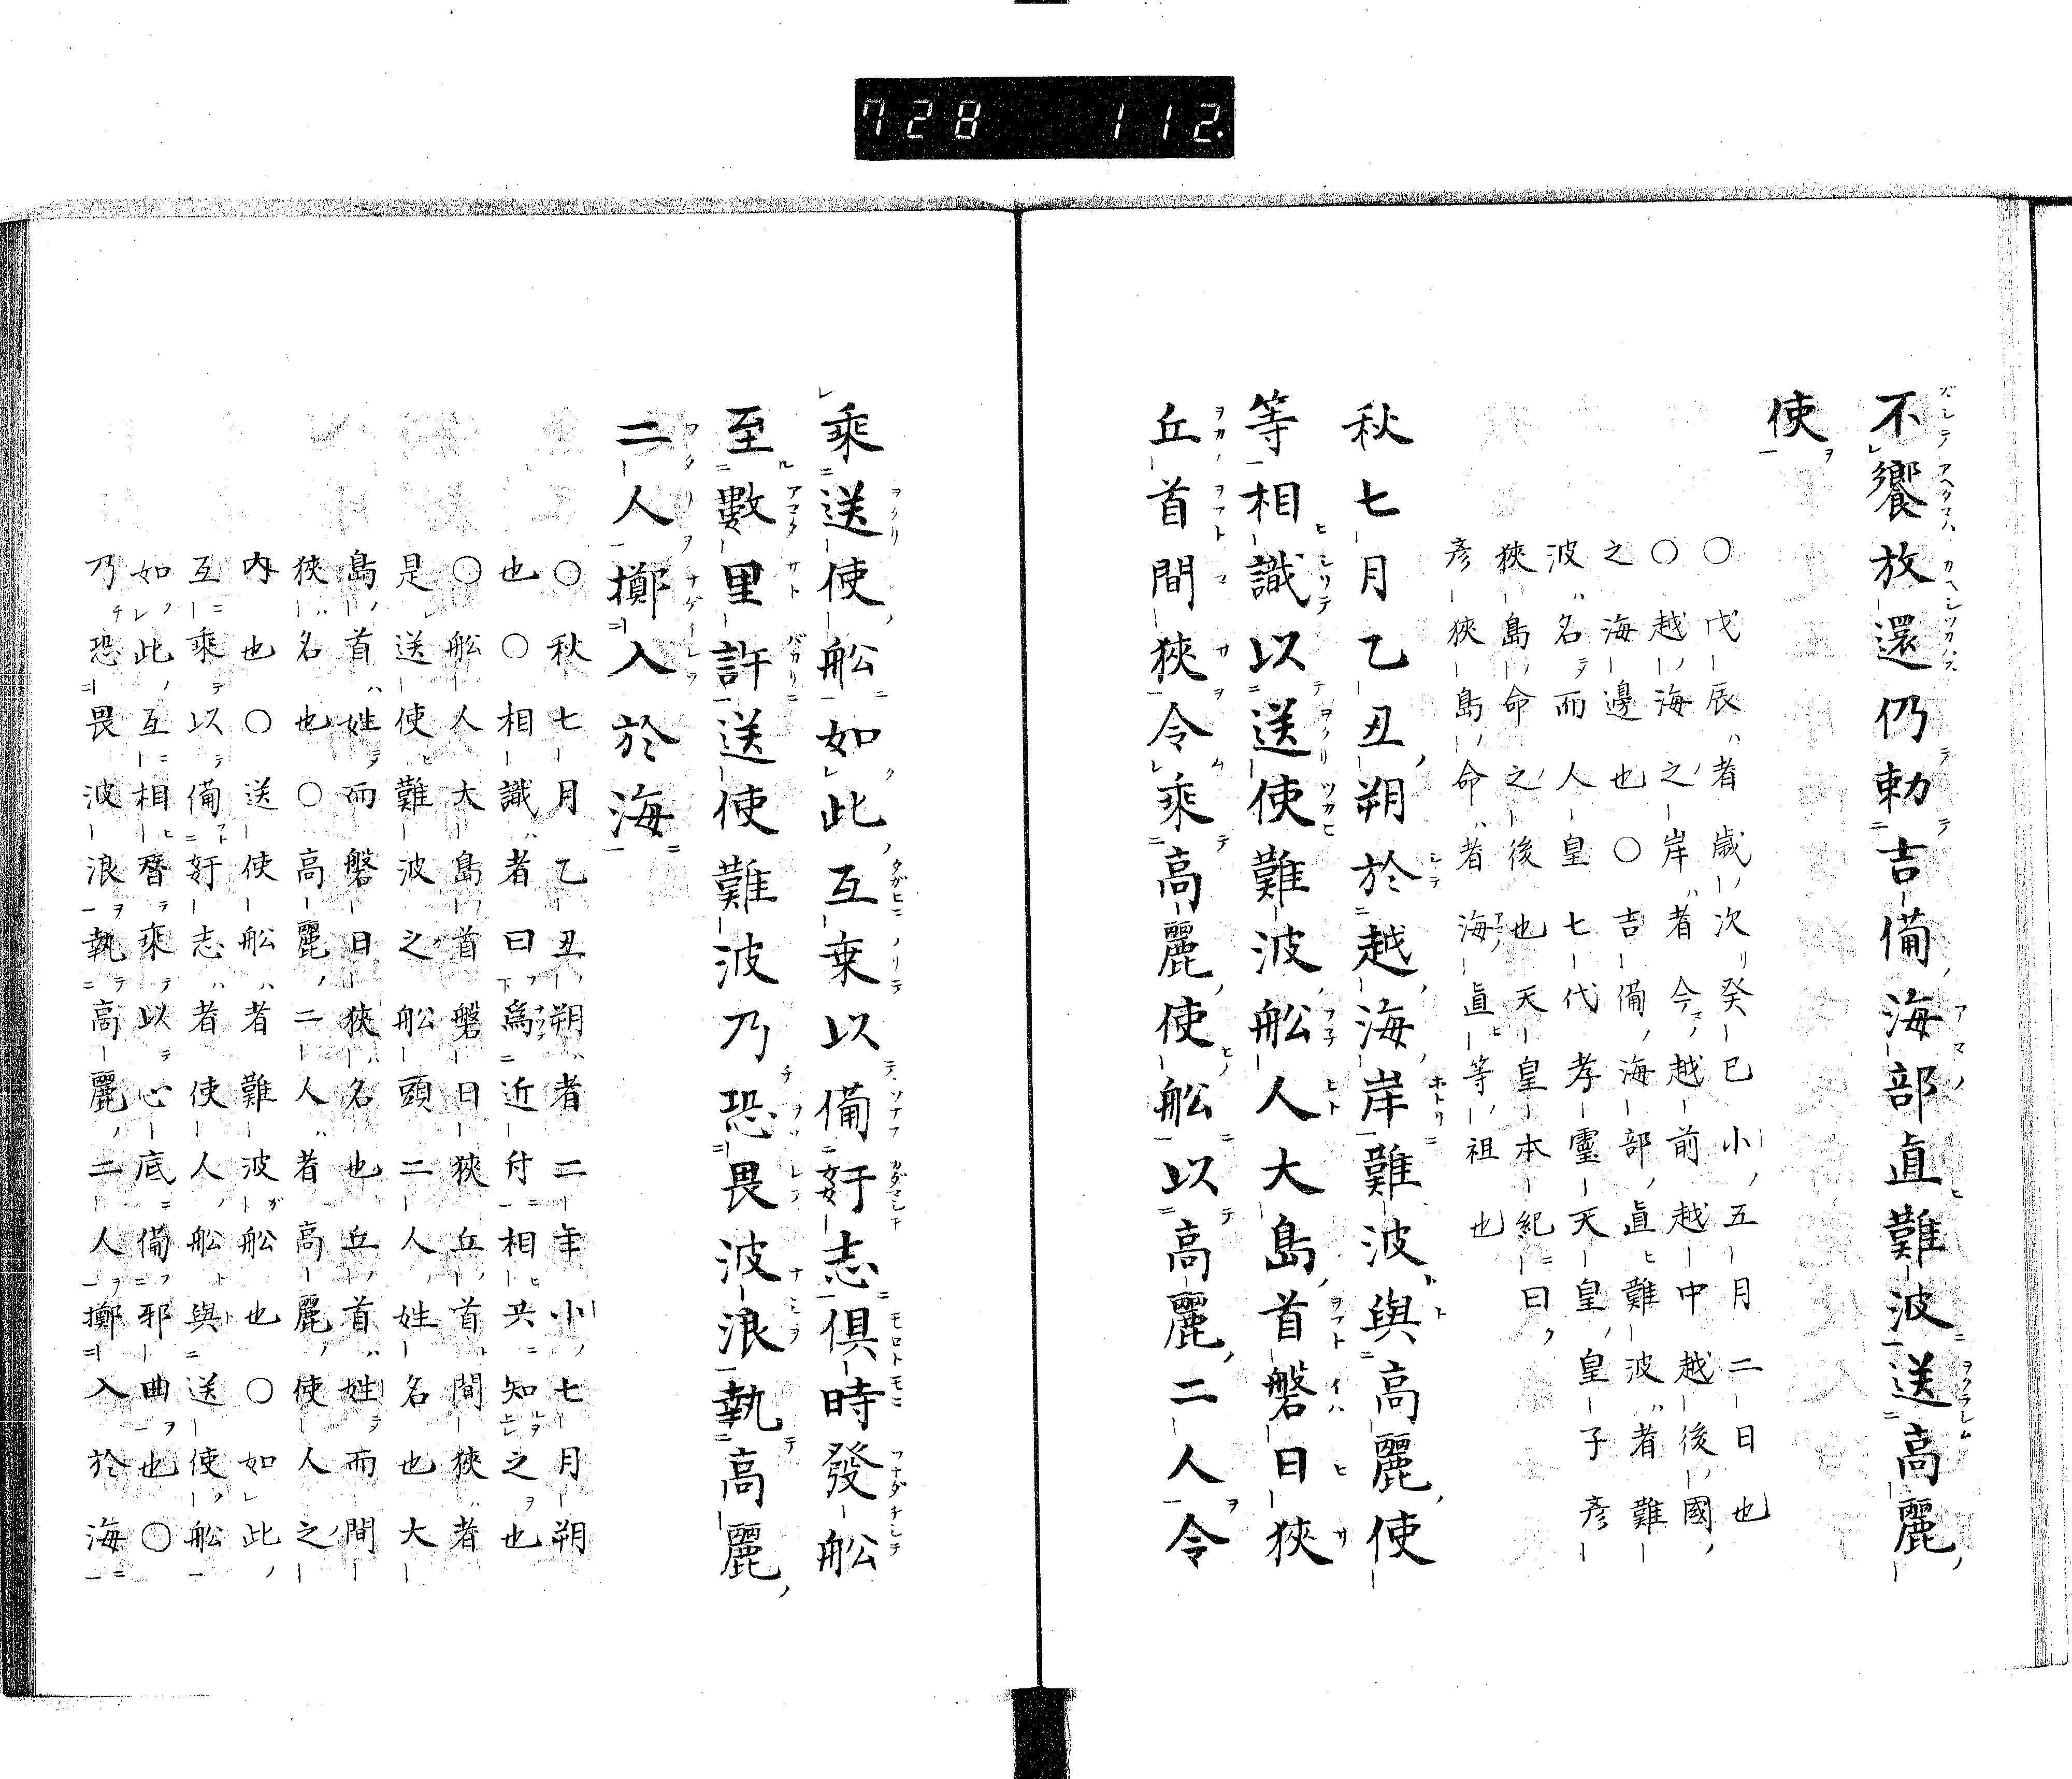 728 112.
不饗放還仍勅吉備海部直難波送高麗
使
○戊辰者歳次癸巳小五月二日也
○越海之岸者今越前越中越後國
之海邊也○吉備海部直難波者難
波名而人皇七代孝靈天皇皇子彦
狹島命之後也天皇本紀曰
彦狹島命者海直等祖也
秋七月乙丑朔於越海岸難波與高麗使
等相識以送使難波舩人大島首磐日狹
丘首間狹令乘高麗使舩以高麗二人令
乘送使舩如此互乗以備奸志俱時發舩
至數里許送使難波乃恐畏波浪執高麗
二人擲入於海
○秋七月乙丑朔者二年小七月朔
也○相識者曰爲近付相共知之也
○舩人大島首磐日狹丘首間狹者
是送使難波之舩頭二人姓名也大
島首姓而磐日狹名也丘首姓而間
狹名也○高麗二人者高麗使人之
内也○送使舩者難波舩也○如此
互乘以備奸志者使人舩與送使舩
如此互相替乘以心底備邪曲也○
乃恐畏波浪執高麗二人擲入於海